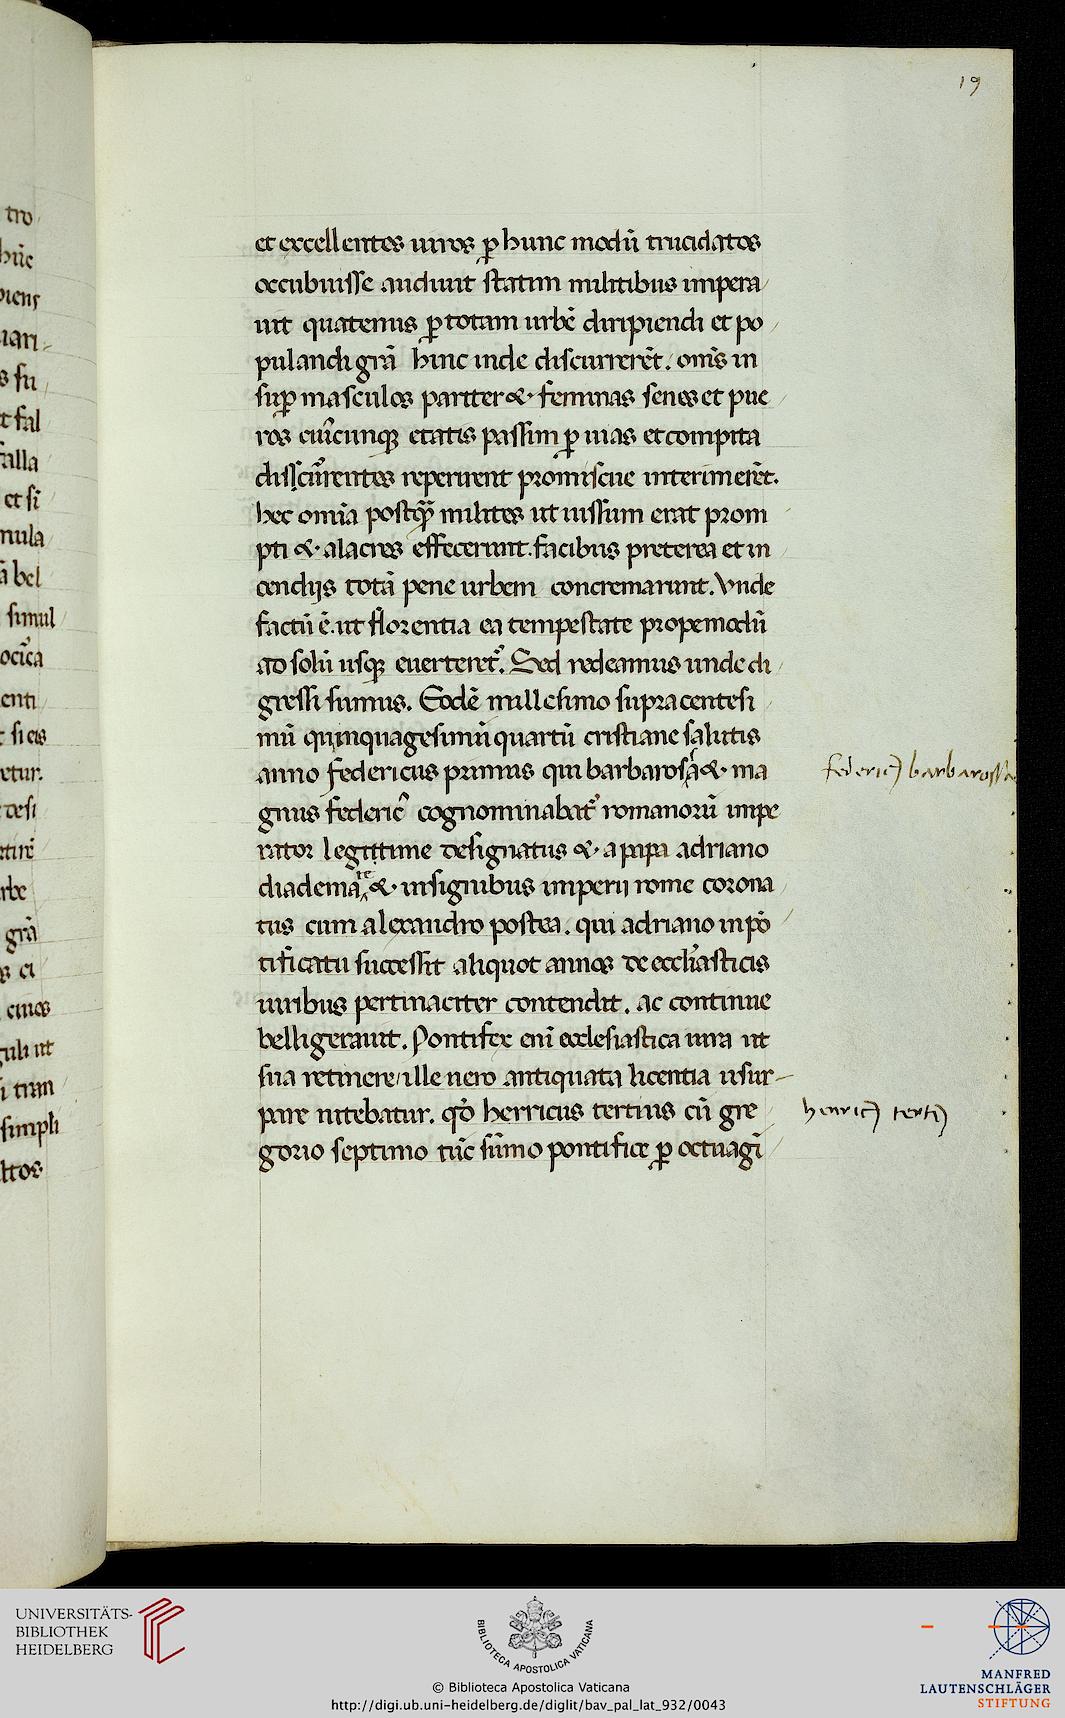 19
et excellentes uiros ꝑ hunc modū trucidatos
occubuisse audiuit statim militibus impera
uit quatenus ꝑ totam urbē diripiendi et po
pulandi grā hinc inde discurrerēt. omīs in
suꝑ masculos pariter & feminas senes et pue
ros cuiūcunqꝫ etatis passim ꝑ uias et compita
disscūrentes reperirent promiscue interimerēt.
hec omīa postqꝫ milites ut iussum erat prom
pti & alacres effecerunt. facibus preterea et in
cendijs totā pene urbem concremarunt. Vnde
factū ē. ut florentia ea tempestate propemodū
ad solū usqꝫ euerteret᷑. Sed redeamus unde di
gressi sumus. Eodē millesimo supracentesi
mū quinquagesimū quartū cristiane salutis
anno federicus primus qui barbarossa & ma
gnus federicꝰ cognominabat᷑ romanorū impe
rator legittime designatus & a papa adriano
diademate & insignibus imperij rome corona
tus cum alexandro postea. qui adriano in pō
tificatu successit aliquot annos de eccliasticis
iuribus pertinaciter contendit. ac continue
belligerauit. Pontifex eni ecclesiastica iura ut
sua retinere ille uero antiquata licentia usur
pare nitebatur. qō herricus tertius cū gre
gorio septimo tūc sūmo pontifice ꝑ octuagi
federicꝰ barbarossa
henricꝰ tertiꝰ
tro
hūc
piens
uari
s su
t fal
falla
et si
mula
ā bel
simul
enti
t si eis
etur.
desi
rbe
grā
s ci
ciues
guli ut
i tran
simpli
ltos
UNIVERSITÄTS-
BIBLIOTHEK
HEIDELBERG
BIBLIOTECA APOSTOLICA VATICANA
© Biblioteca Apostolica Vaticana
http://digi.ub.uni-heidelberg.de/diglit/bav_pal_lat_932/0043
MANFRED
LAUTENSCHLÄGER
STIFTUNG